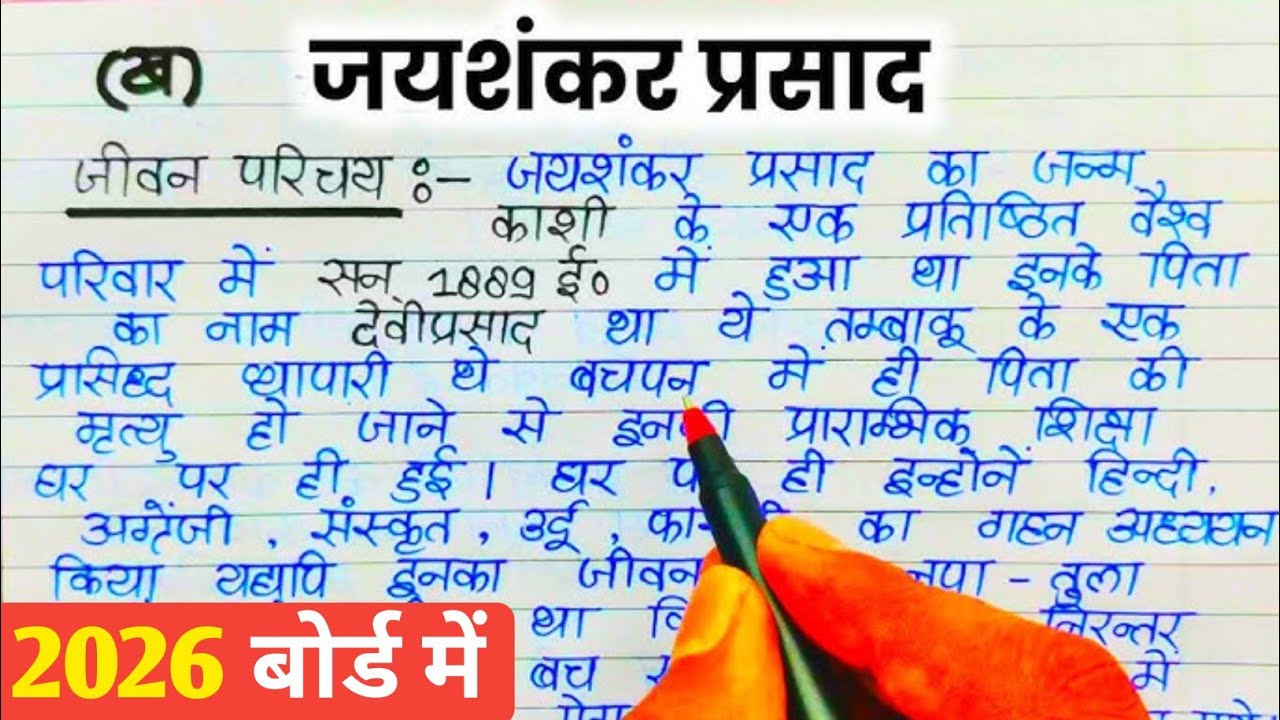 (ख) जयशंकर प्रसाद
जीवन परिचय :- जयशंकर प्रसाद का जन्म
काशी के एक प्रतिष्ठित वैश्व
परिवार में सन् 1889 ई० में हुआ था इनके पिता
का नाम देवीप्रसाद था ये तम्बाकू के एक
प्रसिध्द व्यापारी थे बचपन में ही पिता की
मृत्यु हो जाने से प्रारम्भिक शिक्षा
घर पर ही हुई। घर ही इन्होनें हिन्दी,
अग्रेंजी, संस्कृत, उर्दू, का गहन अध्ययन
किया यद्यपि इनका जीवन नपा-तुला
था निरन्तर
बच में
2026 बोर्ड में